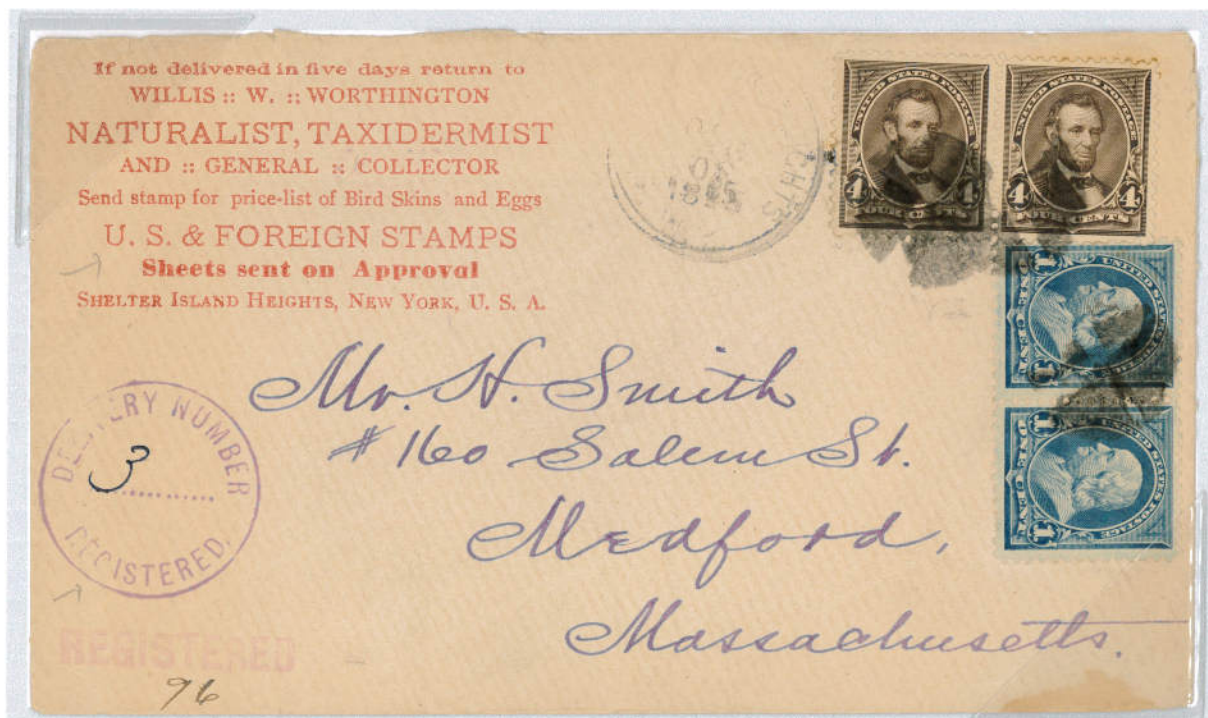 If not delivered in five days return to
WILLIS :: W. :: WORTHINGTON
NATURALIST, TAXIDERMIST
AND :: GENERAL :: COLLECTOR
Send stamp for price-list of Bird Skins and Eggs
U. S. & FOREIGN STAMPS
Sheets sent on Approval
SHELTER ISLAND HEIGHTS, NEW YORK, U. S. A.
1895
UNITED STATES POSTAGE
4 4
FOUR CENTS
UNITED STATES POSTAGE
4 4
FOUR CENTS
UNITED STATES POSTAGE
1 ONE CENT 1
UNITED STATES POSTAGE
1 ONE CENT 1
Mr. H. Smith
#160 Salem St.
Medford,
Massachusetts.
DELIVERY NUMBER
3
REGISTERED.
REGISTERED
96